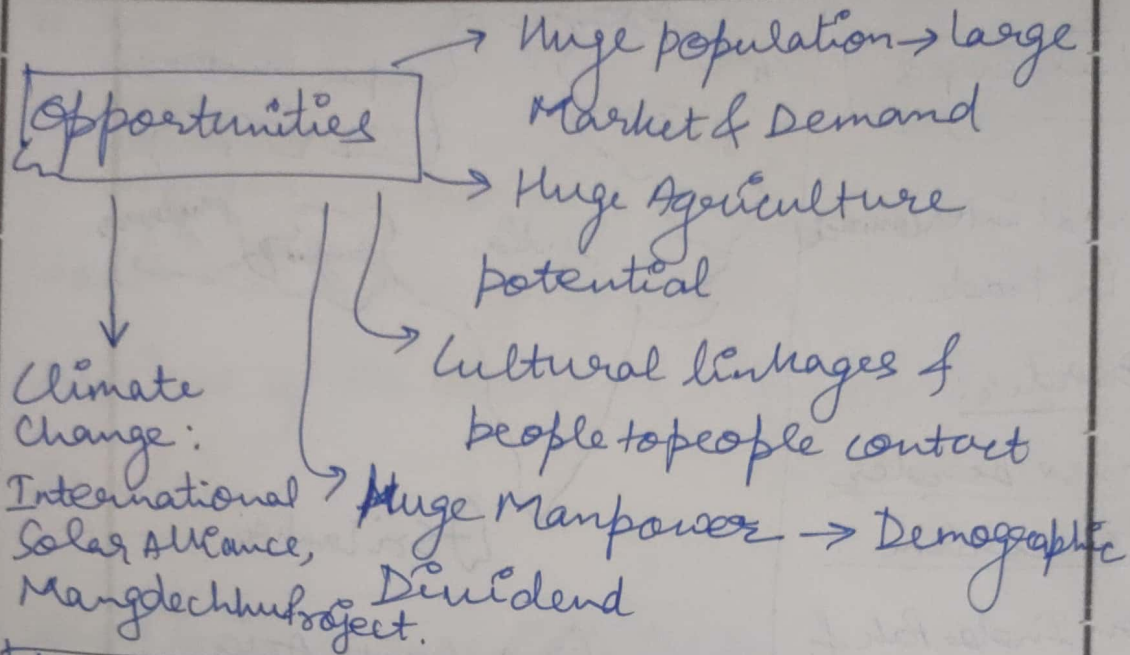 Opportunities
→ Huge population → large
Market & Demand
→ Huge Agriculture
potential
→ Cultural linkages &
people to people contact
→ Huge Manpower → Demographic
Dividend
Climate
Change:
International
Solar Alliance,
Mangdechhu Project.